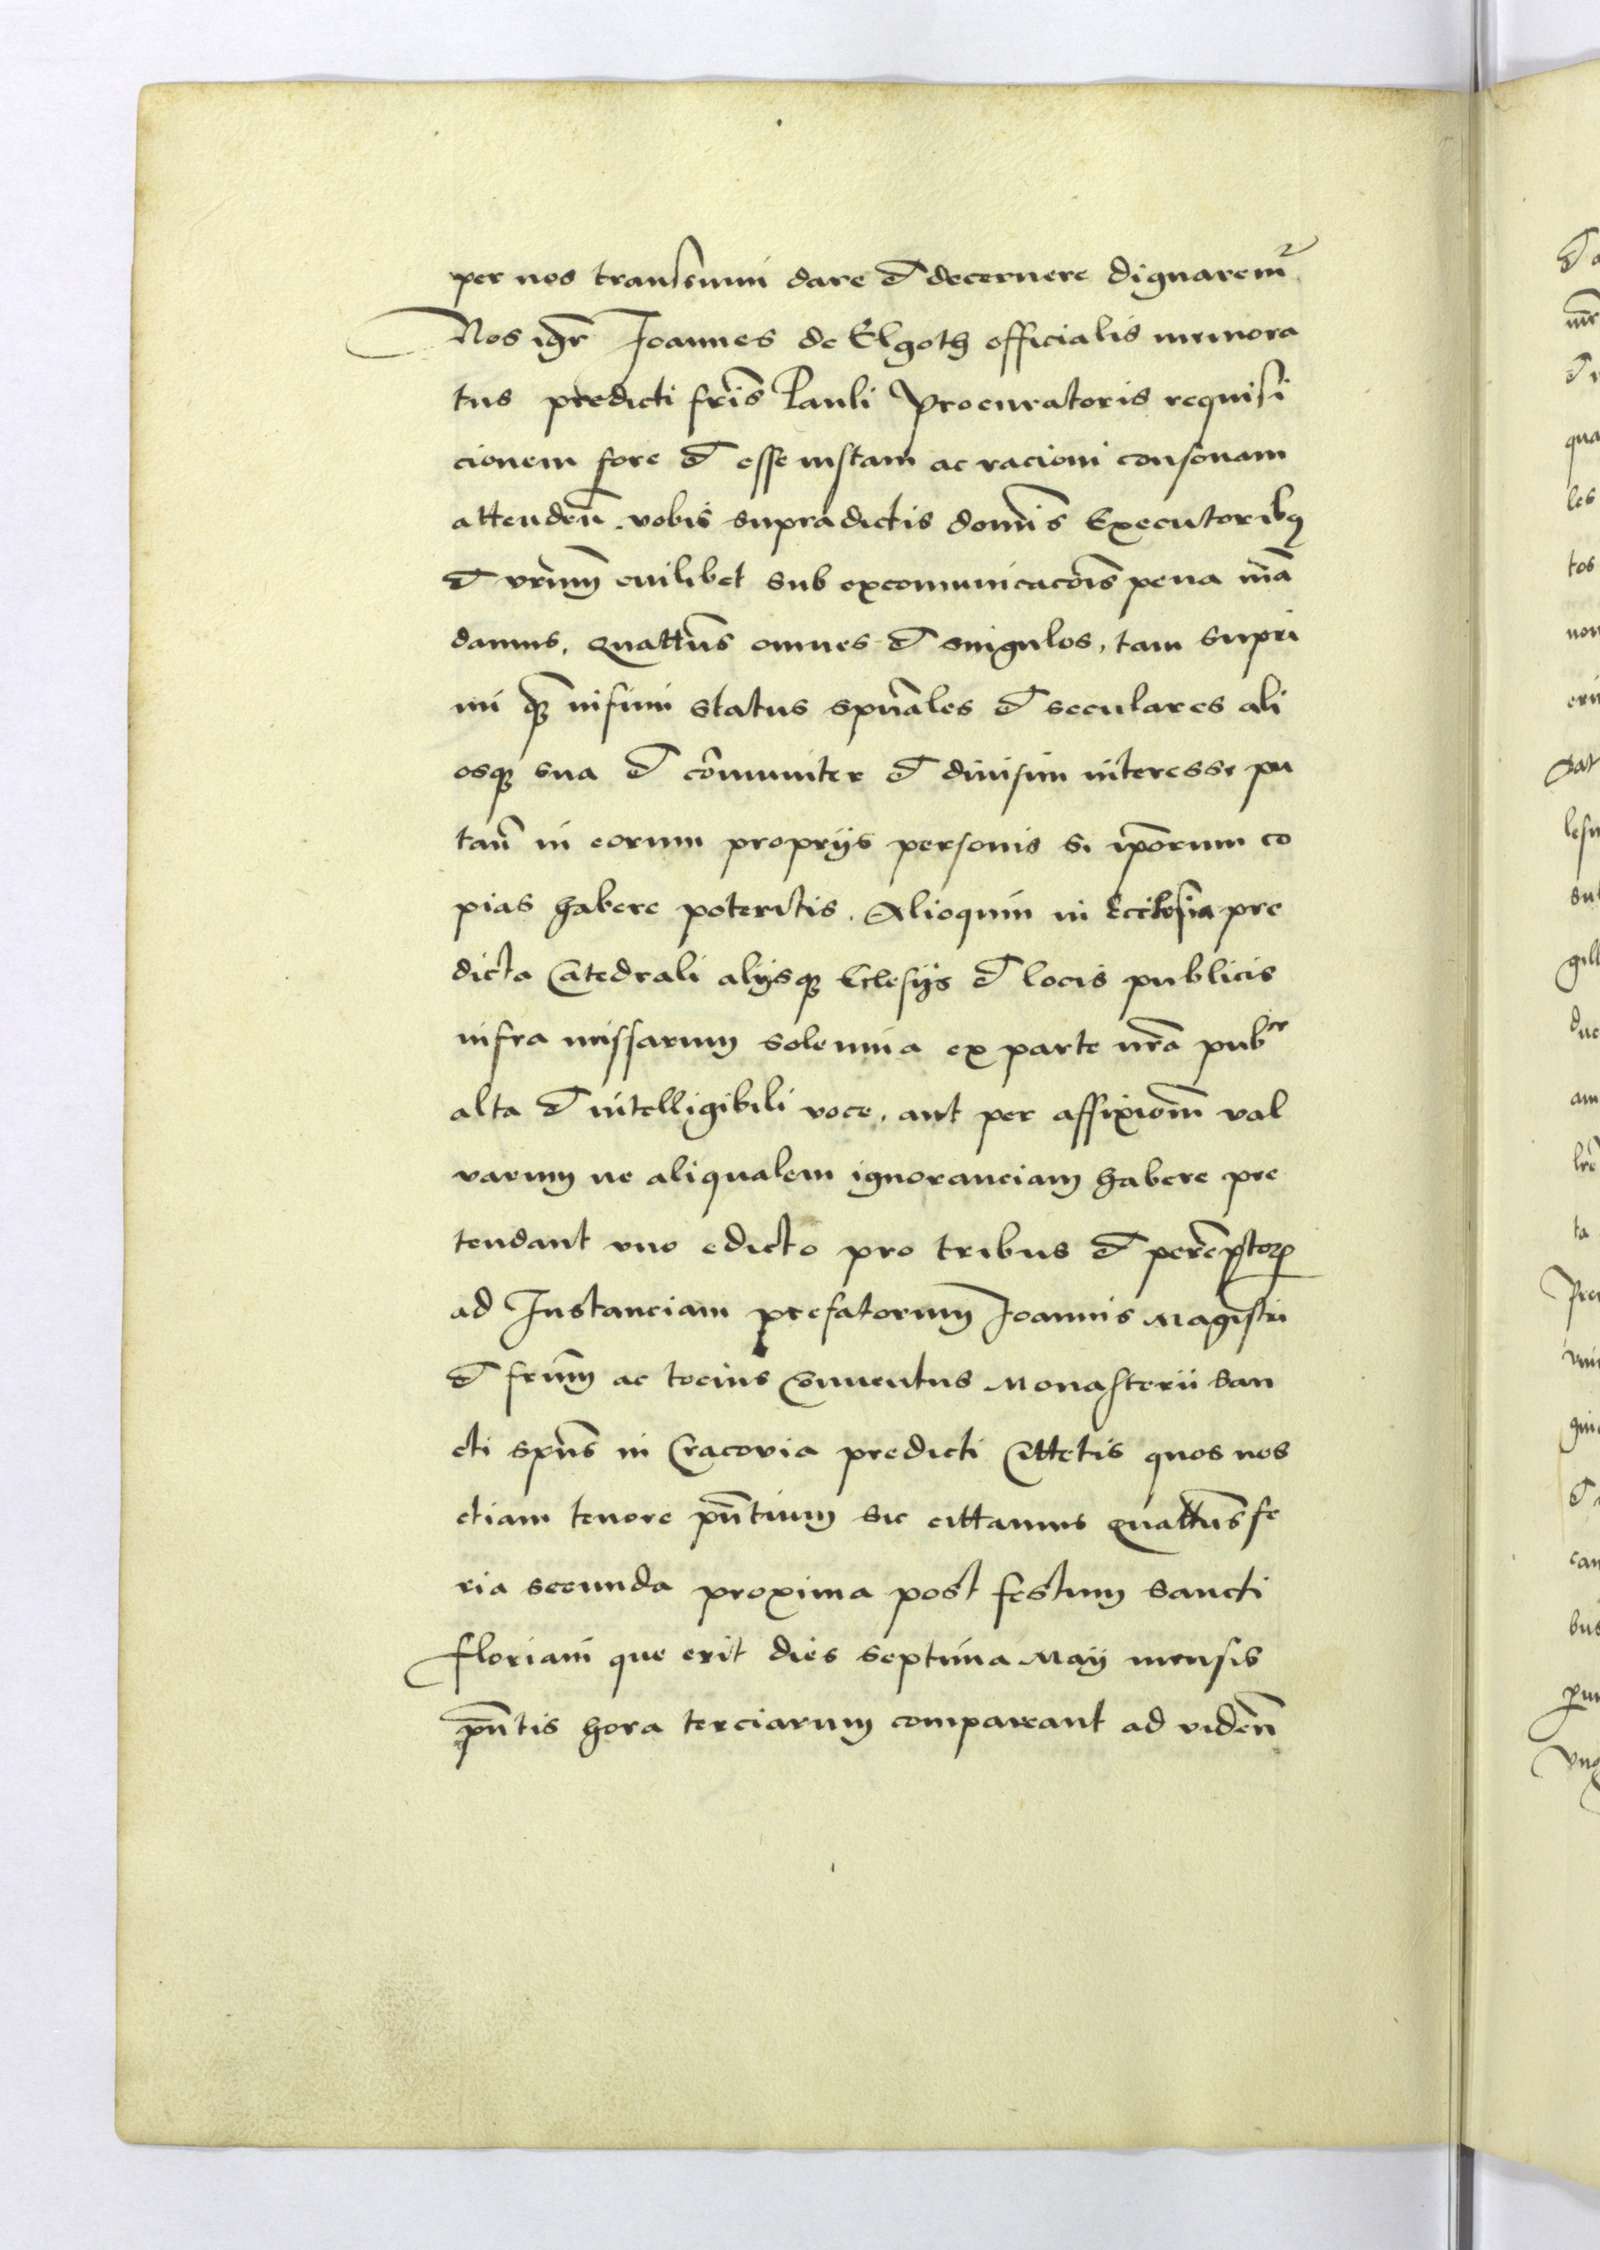 per nos transsumi dare et decernere dignarem̃
Nos igr̃ Joannes de Elgoth officialis memora
tus predicti fr̃is Pauli Procuratoris requisi
cionem fore et esse iustam ac racioni consonam
attenden̄. vobis supradictis domĩs Executoribq
et vr̃um cuilibet sub excomunicacõis pena mã
damus, quattũs omnes et singulos, tam supri
mi qȝ infimi status spũales et seculares ali
osqȝ sua et cõmuniter et diuisim interesse pu
tan̄ in eorum proprijs personis si ipõrum co
pias habere poteritis. Alioquin in Ecclesia pre
dicta Catedrali alijsqȝ Eclesijs et locis publicis
infra missarum solemnia ex parte nr̃a pub^ce
alta et intelligibili voce, aut per affixiom̃ val
varum ne aliqualem ignoranciam habere pre
tendant vno edicto pro tribus et perẽptor̃
ad Instanciam prefatorum Joannis Magistri
et fr̃um ac tocius Conuentus Monasterii San
cti spũs in Cracovia predicti Cittetis quos nos
etiam tenore pñtium sic cittamus quattũs fe
ria secunda proxima post festum Sancti
Floriani que erit dies septima Maij mensis
pñtis hora terciarum compareant ad viden̄